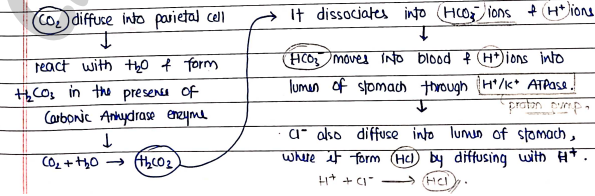 CO₂ diffuse into parietal cell
↓
react with H₂O & form
H₂CO₃ in the presens of
Carbonic Anhydrase enzyme
↓
CO₂ + H₂O → H₂CO₂
→ It dissociates into HCO₃⁻ ions & H⁺ ions
↓
HCO₃⁻ moves into blood & H⁺ ions into
lumen of stomach through H⁺/K⁺ ATPase.
proton pump.
↓
Cl⁻ also diffuse into lumen of stomach,
where it form HCl by diffusing with H⁺.
H⁺ + Cl⁻ → HCl.